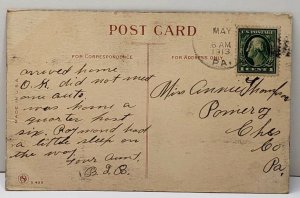 POST CARD
FOR CORRESPONDENCE
FOR ADDRESS ONLY
MAY
8 AM
1913
PA.
arrived home
O.K. did not meet
one auto
was home a
quarter past
six. Raymond had
a little sleep on
the way.
Your Aunt,
Miss Annie Thompson
Pomeroy
Ches
Co
Pa.